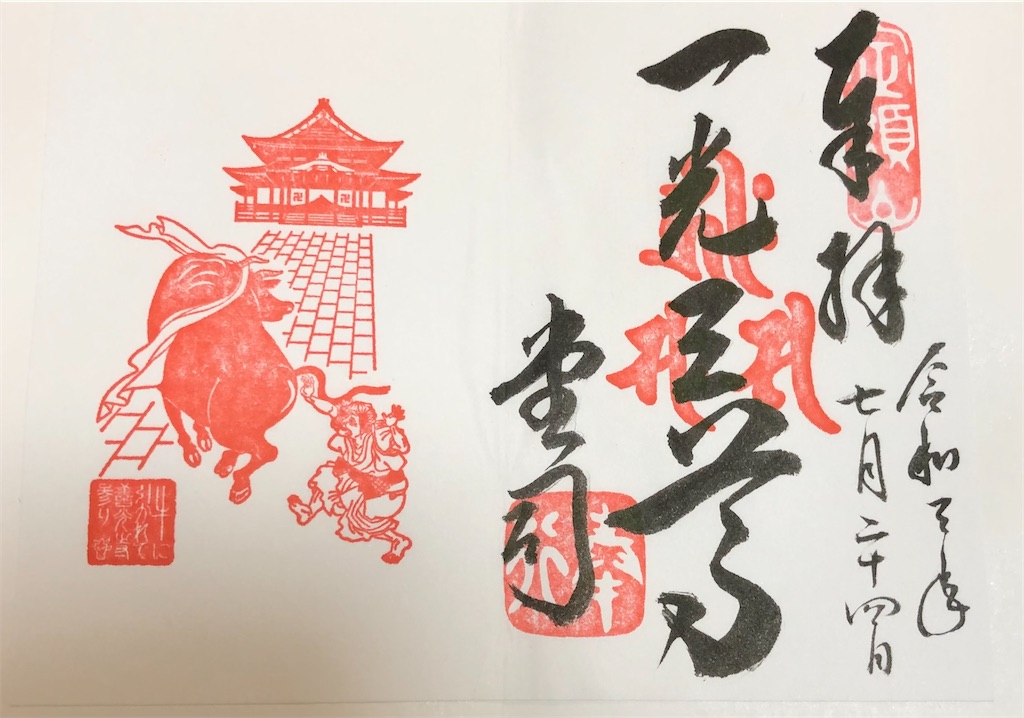 奉拝
令和三年
七月二十四日
一光三尊
堂司
牛に
引かれて
善光寺
参り
定額山